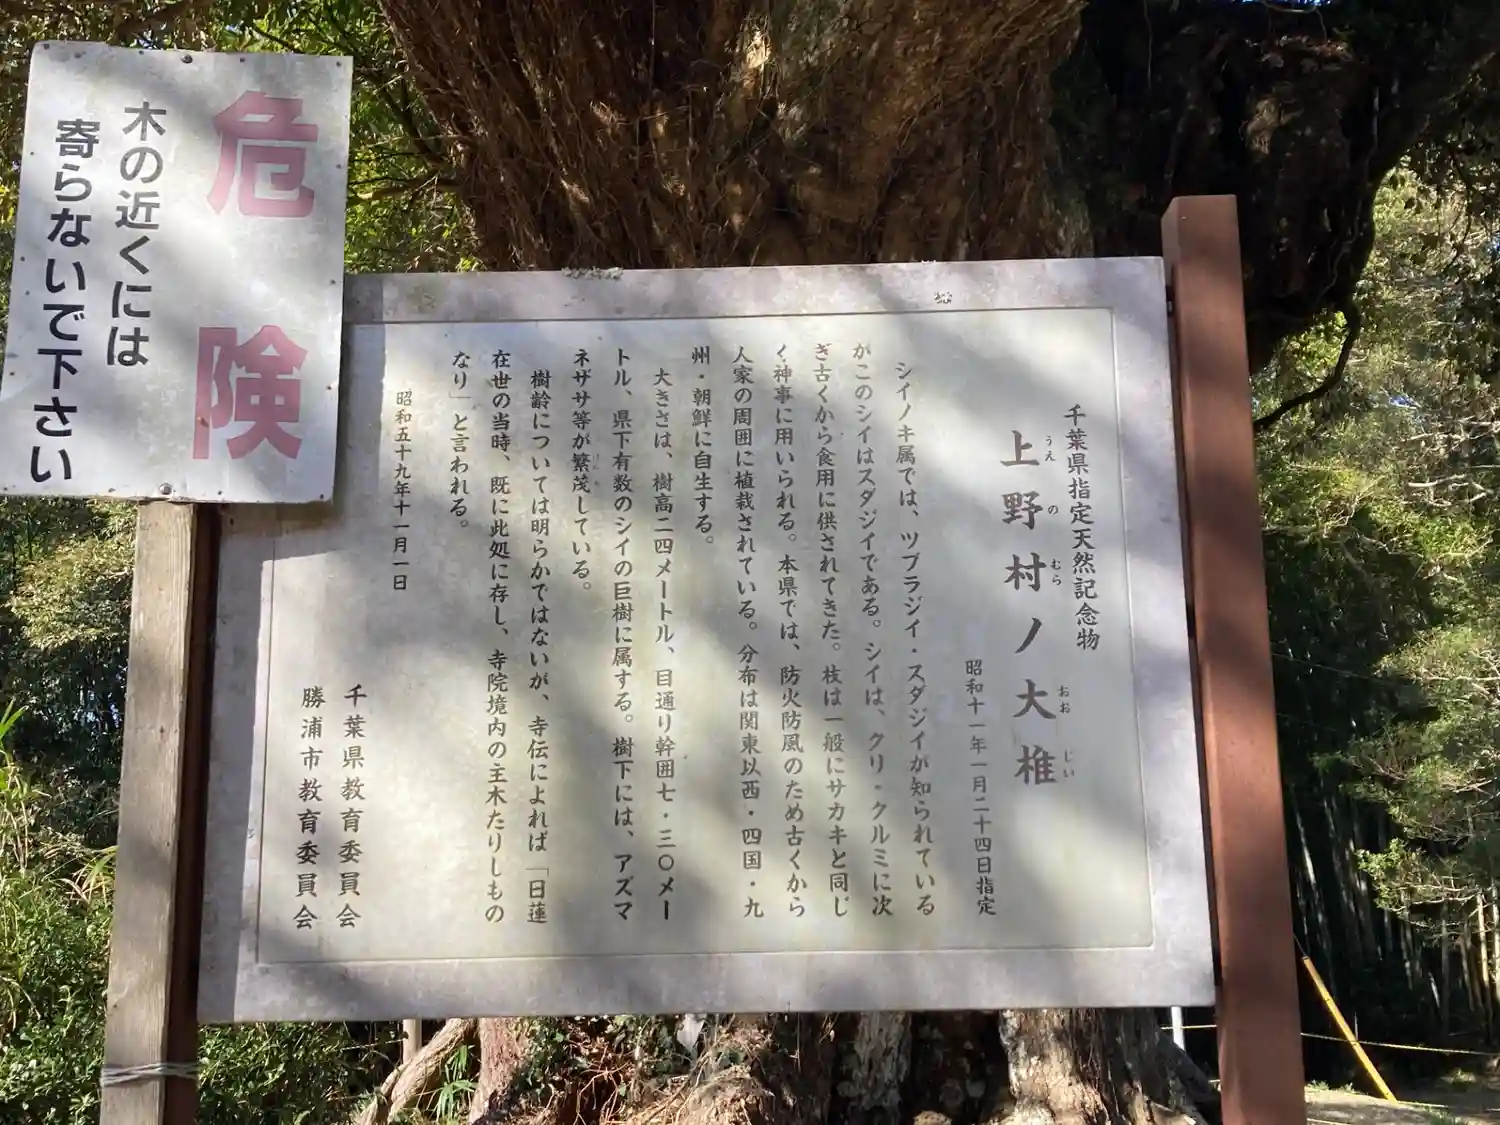 危険
木の近くには
寄らないで下さい
千葉県指定天然記念物
上野村ノ大椎
うえ の むら おお じい
昭和十一年一月二十四日指定
シイノキ属では、ツブラジイ・スダジイが知られている
がこのシイはスダジイである。シイは、クリ・クルミに次
ぎ古くから食用に供されてきた。枝は一般にサカキと同じ
く神事に用いられる。本県では、防火防風のため古くから
人家の周囲に植栽されている。分布は関東以西・四国・九
州・朝鮮に自生する。
大きさは、樹高二四メートル、目通り幹囲七・三〇メー
トル、県下有数のシイの巨樹に属する。樹下には、アズマ
ネザサ等が繁茂している。
樹齢については明らかではないが、寺伝によれば「日蓮
在世の当時、既に此処に存し、寺院境内の主木たりしもの
なり」と言われる。
昭和五十九年十一月一日
千葉県教育委員会
勝浦市教育委員会